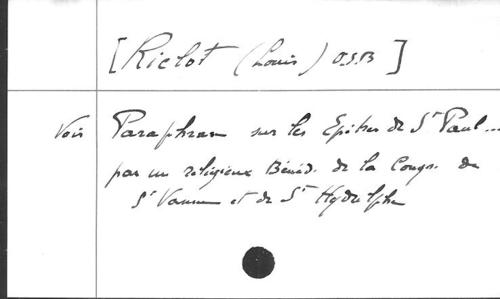 [Riclot (Louis) O.S.B]
Voir Paraphrase sur les Epitres de St Paul...
par un religieux Bénéd. de la Congr. de
St Vanne et de St Hydulphe